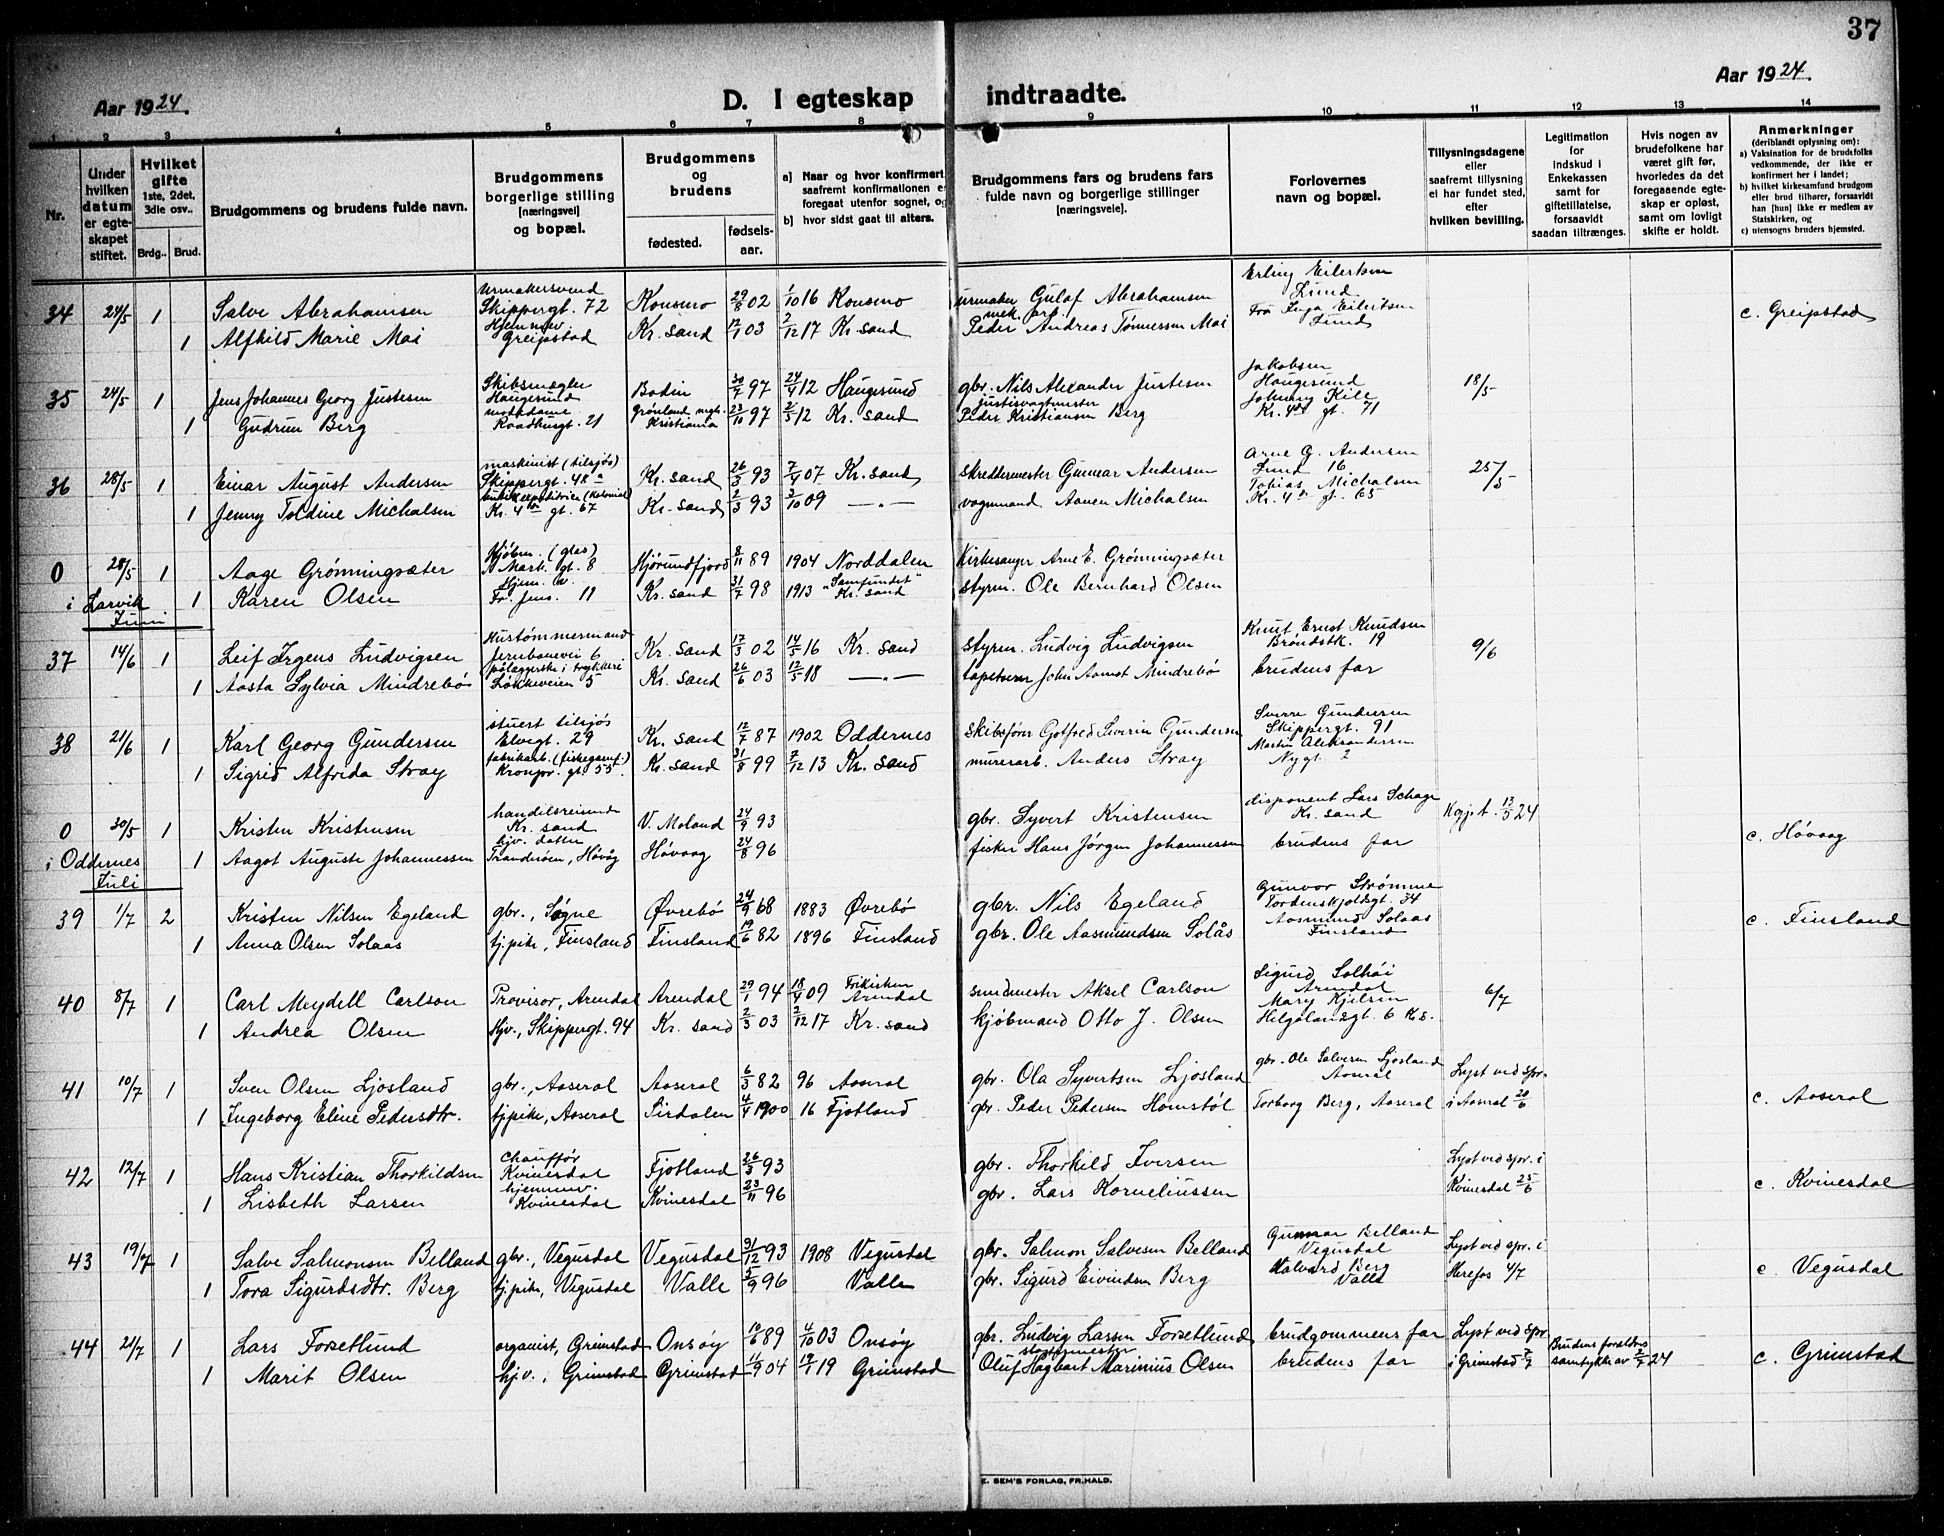 37
Aar 1924. D. I egteskap indtraadte. Aar 1924.
1 2 3 4 5 6 7 8 9 10 11 12 13 14
Nr.
Under hvilken datum er egteskapet stiftet.
Hvilket gifte 1ste, 2det, 3die osv..
Brdg.. Brud.
Brudgommens og brudens fulde navn.
Brudgommens borgerlige stilling [næringsvei] og bopæl.
Brudgommens og brudens
fødested. fødsels-aar.
a) Naar og hvor konfirmert,
saafremt konfirmationen er
foregaat utenfor sognet, og
b) hvor sidst gaat til alters.
Brudgommens fars og brudens fars
fulde navn og borgerlige stillinger
[næringsveie].
Forlovernes
navn og bopæl.
Tillysningsdagene
eller
saafremt tillysning
ei har fundet sted,
efter
hvilken bevilling.
Legitimation
for
indskud i
Enkekassen
samt for
giftetillatelse,
forsaavidt
saadan tiltrænges.
Hvis nogen av
brudefolkene har
været gift før,
hvorledes da det
foregaaende egte-
skap er opløst,
samt om lovligt
skifte er holdt.
Anmerkninger
(deriblandt oplysning om):
a) Vaksination for de brudefolks
vedkommende, der ikke er
konfirmert her i landet;
b) hvilket kirkesamfund brudgom
eller brud tilhører, forsaavidt
han [hun] ikke er medlem av
Statskirken, og
c) utensogns bruders hjemsted.
34 24/5 1 Salve Abrahamsen Urmakersvend Skippergt. 72 Konsmo 29/8 02 1/10 16 Konsmo urmaker Gulaf Abrahamsen Erling Eilertsen Lund c. Greipstad
1 Alfhild Marie Moi Hjemmev Greipstad Kr. sand 12/1 03 2/12 17 Kr. sand mek. arb. Peder Andreas Tønnessen Moi Fru Inga Eilertsen Lund
35 24/5 1 Jens Johannes Georg Justesen Skibsmægler Haugesund Bodin 30/7 97 24/4 12 Haugesund gbr. Nils Alexander Justesen Jakobsen Haugesund 18/5
1 Gudrun Berg motedame Raadhusgt. 21 Grønland mgt. Kristiania 23/10 97 2/3 12 Kr. sand justisvagtmester Peder Kristiansen Berg Johnny Kile Kr. 4des gt. 71
36 28/5 1 Einar August Andersen maskinist (tilsjøs) Skippergt. 48a Kr. sand 26/3 93 7/4 07 Kr. sand skreddermester Gunnar Andersen Arne G. Andersen Lund 16 25/5
1 Jenny Toldine Michalsen butikexpeditrice (Kolonial) Kr. 4des gt. 67 Kr. sand 2/3 93 3/10 09 —„— vognmand Aanen Michalsen Tobias Michalsen Kr. 4des gt. 65
0 28/5 1 Aage Grønningsæter Kjøbm. (glas) Mark. gt. 8 Hjørundfjord 8/11 89 1904 Norddalen Kirkesanger Arne E. Grønningsæter
i Larvik 1 Karen Olsen Hjem. v. Fr. Jens. 11 Kr. sand 31/7 98 1913 "Samfundet" Kr. sand styrm. Ole Bernhard Olsen
Juni
37 14/6 1 Leif Irgens Ludvigsen Hustømmermand Jernbanevei 6 Kr. sand 17/3 02 14/5 16 Kr. sand styrm. Ludvig Ludvigsen Knut Ernst Knudsen Brøndstk. 19 9/6
1 Aasta Sylvia Mindrebø pålæggerske i trykkeri Løkkeveien 5 Kr. sand 26/6 03 12/5 18 —„— tapetserer John Aamot Mindrebø brudens far
38 21/6 1 Karl Georg Gundersen stuert tilsjøs Elvegt. 29 Kr. sand 12/7 87 1902 Oddernes Skibsfører Gotfred Severin Gundersen Sverre Gundersen Skippergt. 91
1 Sigrid Alfrida Stray fabrikarb. (fiskegarnf.) Kronpr. gt 55. Kr. sand 31/8 99 7/12 13 Kr. sand murerarb. Anders Stray Martin Aleksandersen Nygt. 2
0 30/5 1 Kristen Kristensen handelsreisende Kr. sand V. Moland 24/9 93 gbr. Syvert Kristensen disponent Lars Schage Kr. sand Kgjt. 13/5 24
i Oddernes 1 Aagot Auguste Johannessen hjv. datter Trandeøen, Høvåg Høvaag 24/8 96 fisker Hans Jørgen Johannessen brudens far c. Høvaag
Juli
39 1/7 2 Kristen Nilsen Egeland gbr., Søgne Øvrebø 24/9 68 1883 Øvrebø gbr. Nils Egeland Gunvor Strømme Tordenskjoldsgt. 34
1 Anna Olsen Solaas tj.pike, Finsland Finsland 19/6 82 1896 Finsland gbr. Ole Aasmundsen Solås Aasmund Solaas Finsland c. Finsland
40 8/7 1 Carl Meydell Carlson Provisor, Arendal Arendal 29/1 94 18/4 09 Frikirken Arendal smedmester Aksel Carlson Sigurd Solhøi Arendal 6/7
1 Andrea Olsen Hjv., Skippergt. 94 Kr. sand 2/3 03 2/12 17 Kr. sand kjøbmand Otto J. Olsen Mary Kjelsen Helgelandsgt. 6 K.s.
41 10/7 1 Sven Olsen Ljosland gbr., Aaseral Aaseral 6/3 82 96 Aaseral gbr. Ola Syvertsen Ljosland gbr. Ole Salvesen Ljosland Aaseral Lyst ved spr.
1 Ingeborg Eline Pedersdtr. tj.pike, Aaseral Sirdalen 4/4 1900 16 Fjotland gbr. Peder Pedersen Homstøl Torborg Berg, Aaseral i Aaseral 20/6 c. Aaseral
42 12/7 1 Hans Kristian Thorkildsen Chauffør Kvinesdal Fjotland 26/3 93 gbr. Thorkild Iversen Lyst ved spr. i
1 Lisbeth Larsen hjemmev. Kvinesdal Kvinesdal 23/11 96 gbr. Lars Korneliussen Kvinesdal 25/6 c. Kvinesdal
43 19/7 1 Salve Salmonsen Belland gbr., Vegusdal Vegusdal 31/12 93 1908 Vegusdal gbr. Salmon Salvesen Belland Gunnar Belland Vegusdal Lyst ved spr. i
1 Tora Sigurdsdtr. Berg tj.pike, Vegusdal Valle 5/9 96 Valle gbr. Sigurd Eivindsen Berg Halvard Berg Valle Herefos 4/7 c. Vegusdal
44 21/7 1 Lars Forsetlund organist, Grimstad Onsøy 10/6 89 4/10 03 Onsøy gbr. Ludvig Larsen Forsetlund brudgommens far Lyst ved spr. Brudens forældre
1 Marit Olsen hj.v., Grimstad Grimstad 11/9 04 19 Grimstad Oluf Hagbart Marinius Olsen brudens far i Grimstad 7/7 samtykke av 7/7 24 c. Grimstad
E. SEM'S FORLAG, FR.HALD.